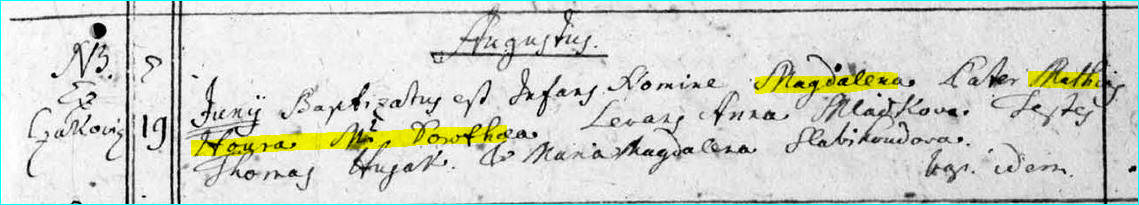 Augustus.
NB. Junij Baptizatus est Infans Nomine Magdalena Pater Mathias
Ex
19 Houra Mr Dorothea Levans Anna Mladkova. Testes
Thomas Husak. & Maria Magdalena Slabihoudova.
bap. idem.